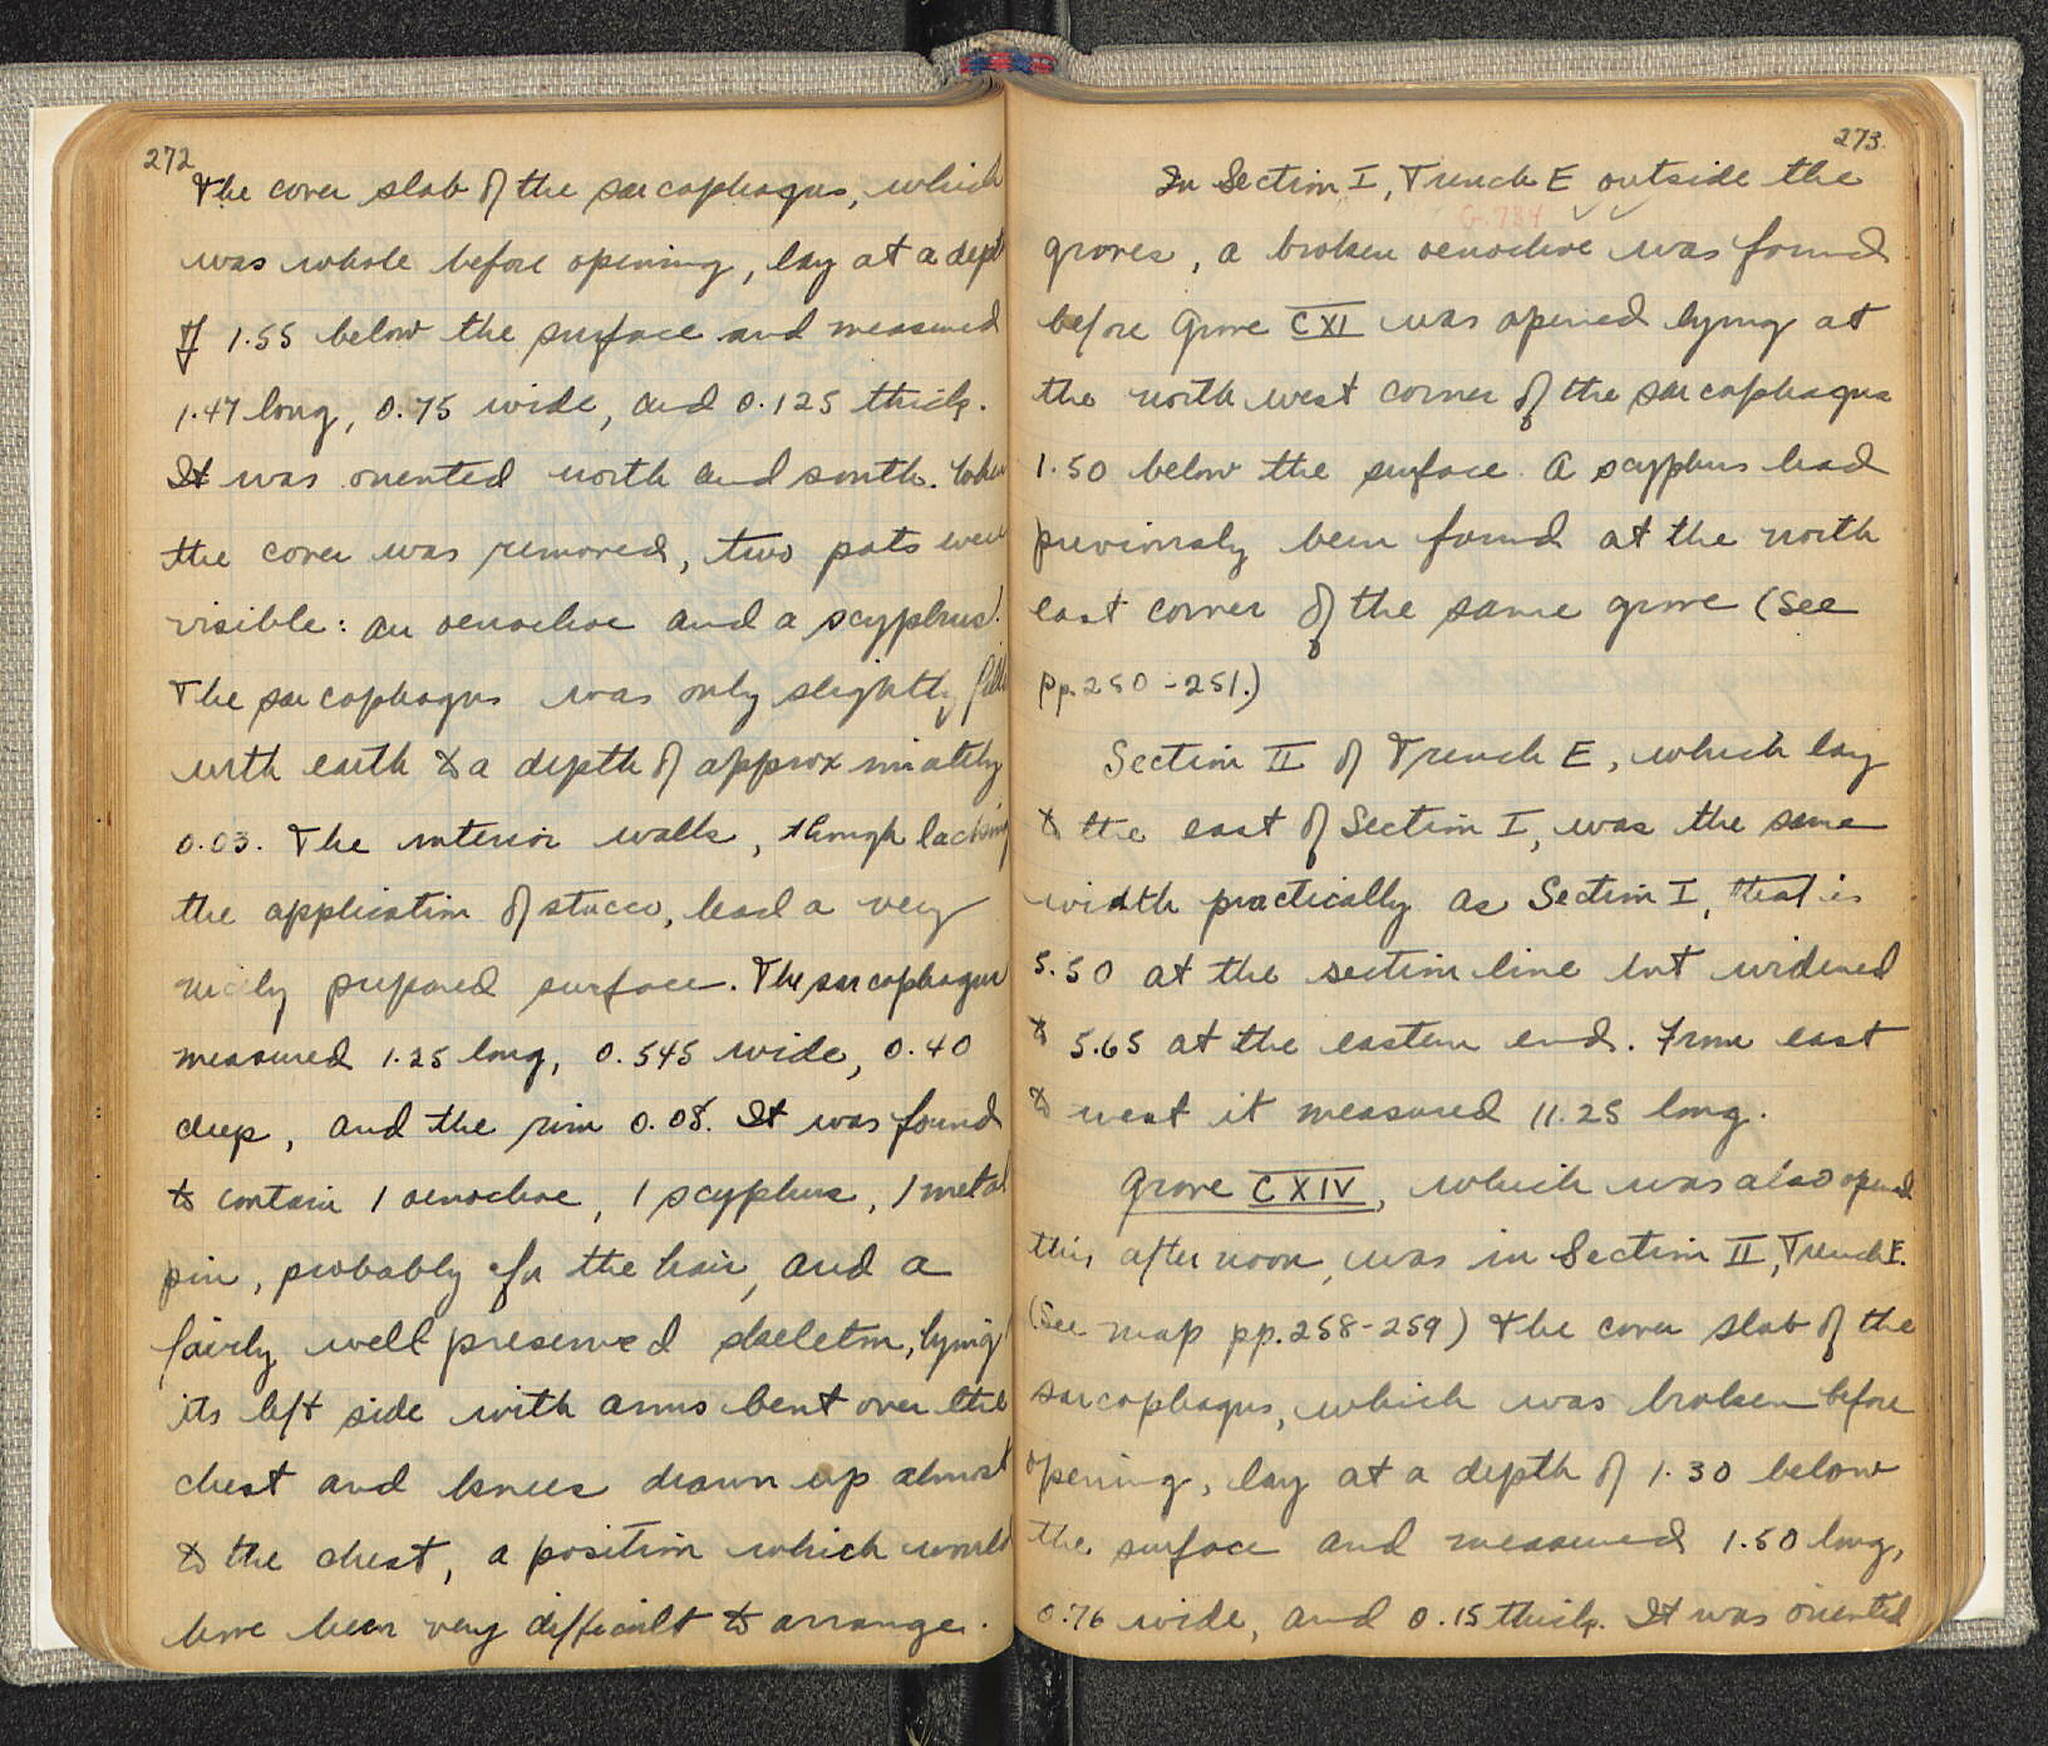 272
The cover slab of the sarcophagus, which
was whole before opening, lay at a dept
of 1.55 below the surface and measured
1.47 long, 0.75 wide, and 0.125 thick.
It was oriented north and south. When
the cover was removed, two pots were
visible: an oenochoe and a scyphus.
The sarcophagus was only slightly filled
with earth to a depth of approximately
0.03. The interior walls, though lacking
the application of stucco, had a very
nicely prepared surface. The sarcophagus
measured 1.25 long, 0.545 wide, 0.40
deep, and the rim 0.08. It was found
to contain 1 oenochoe, 1 scyphus, 1 metal
pin, probably for the hair, and a
fairly well preserved skeleton, lying
its left side with arms bent over the
chest and knees drawn up almost
to the chest, a position which would
have been very difficult to arrange.
273.
In Section I, Trench E outside the
G.734
graves, a broken oenochoe was found
before Grave CXI was opened lying at
the north west corner of the sarcophagus
1.50 below the surface. A scyphus had
previously been found at the north
east corner of the same grave (see
pp. 250-251.)
Section II of Trench E, which lay
to the east of Section I, was the same
width practically as Section I, that is
5.50 at the section line but widened
to 5.65 at the eastern end. From east
to west it measured 11.25 long.
Grave CXIV, which was also opened
this afternoon, was in Section II, Trench E.
(See map pp. 258-259) The cover slab of the
sarcophagus, which was broken before
opening, lay at a depth of 1.30 below
the surface and measured 1.50 long,
0.76 wide, and 0.15 thick. It was oriented